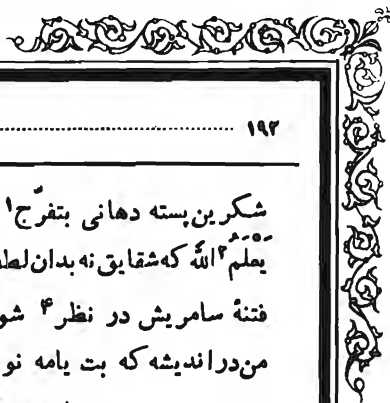 ۱۹۲
شکرین پسته دهانی بتفرّج۱
یَعْلَمُ۲ الله که شقایق نه بدان لطف
فتنهٔ سامریش در نظر۴ شو
من در اندیشه که بت یا مه نو